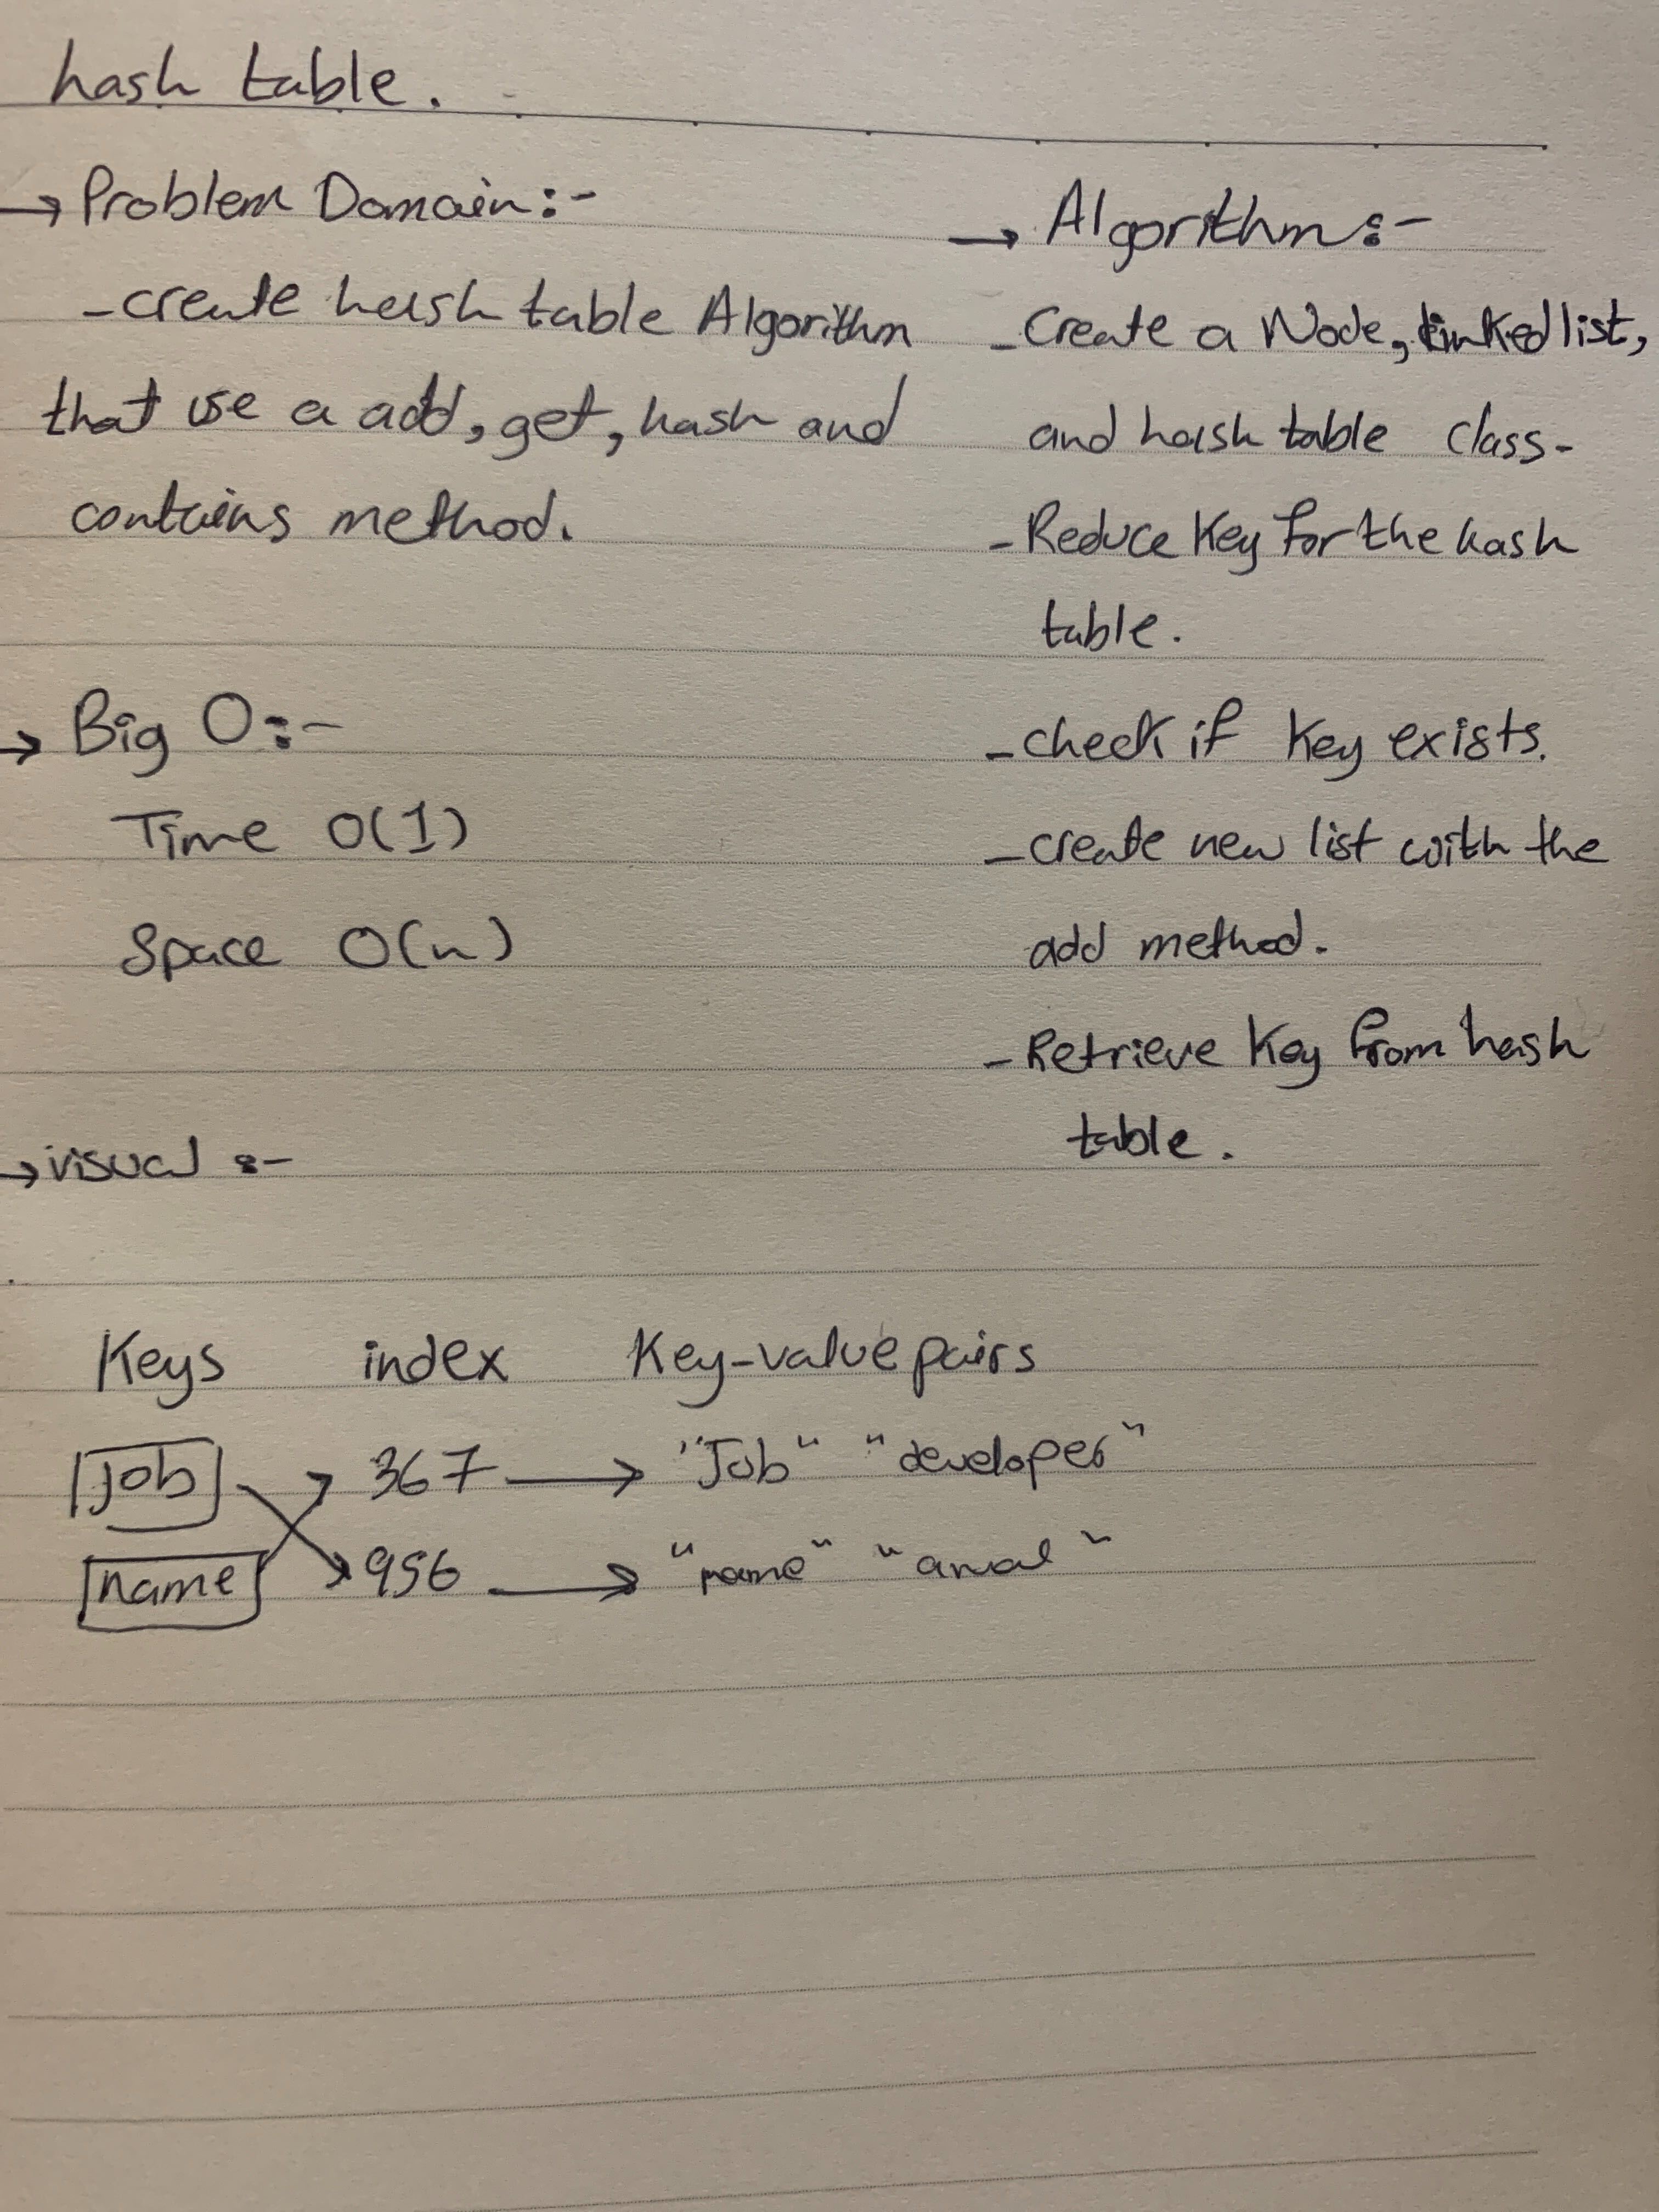 hash table.
→ Problem Domain:-
- create hash table Algorithm
that use a add, get, hash and
contains method.
→ Big O:-
Time O(1)
Space O(n)
→ Algorithm:-
- Create a Node, linked list,
and hash table class-
- Reduce Key for the hash
table.
- check if Key exists.
- create new list with the
add method.
- Retrieve Key from hash
table.
→ visual :-
Keys index Key-value pairs
Job 367 → "Job" "developer"
name 956 → "name"